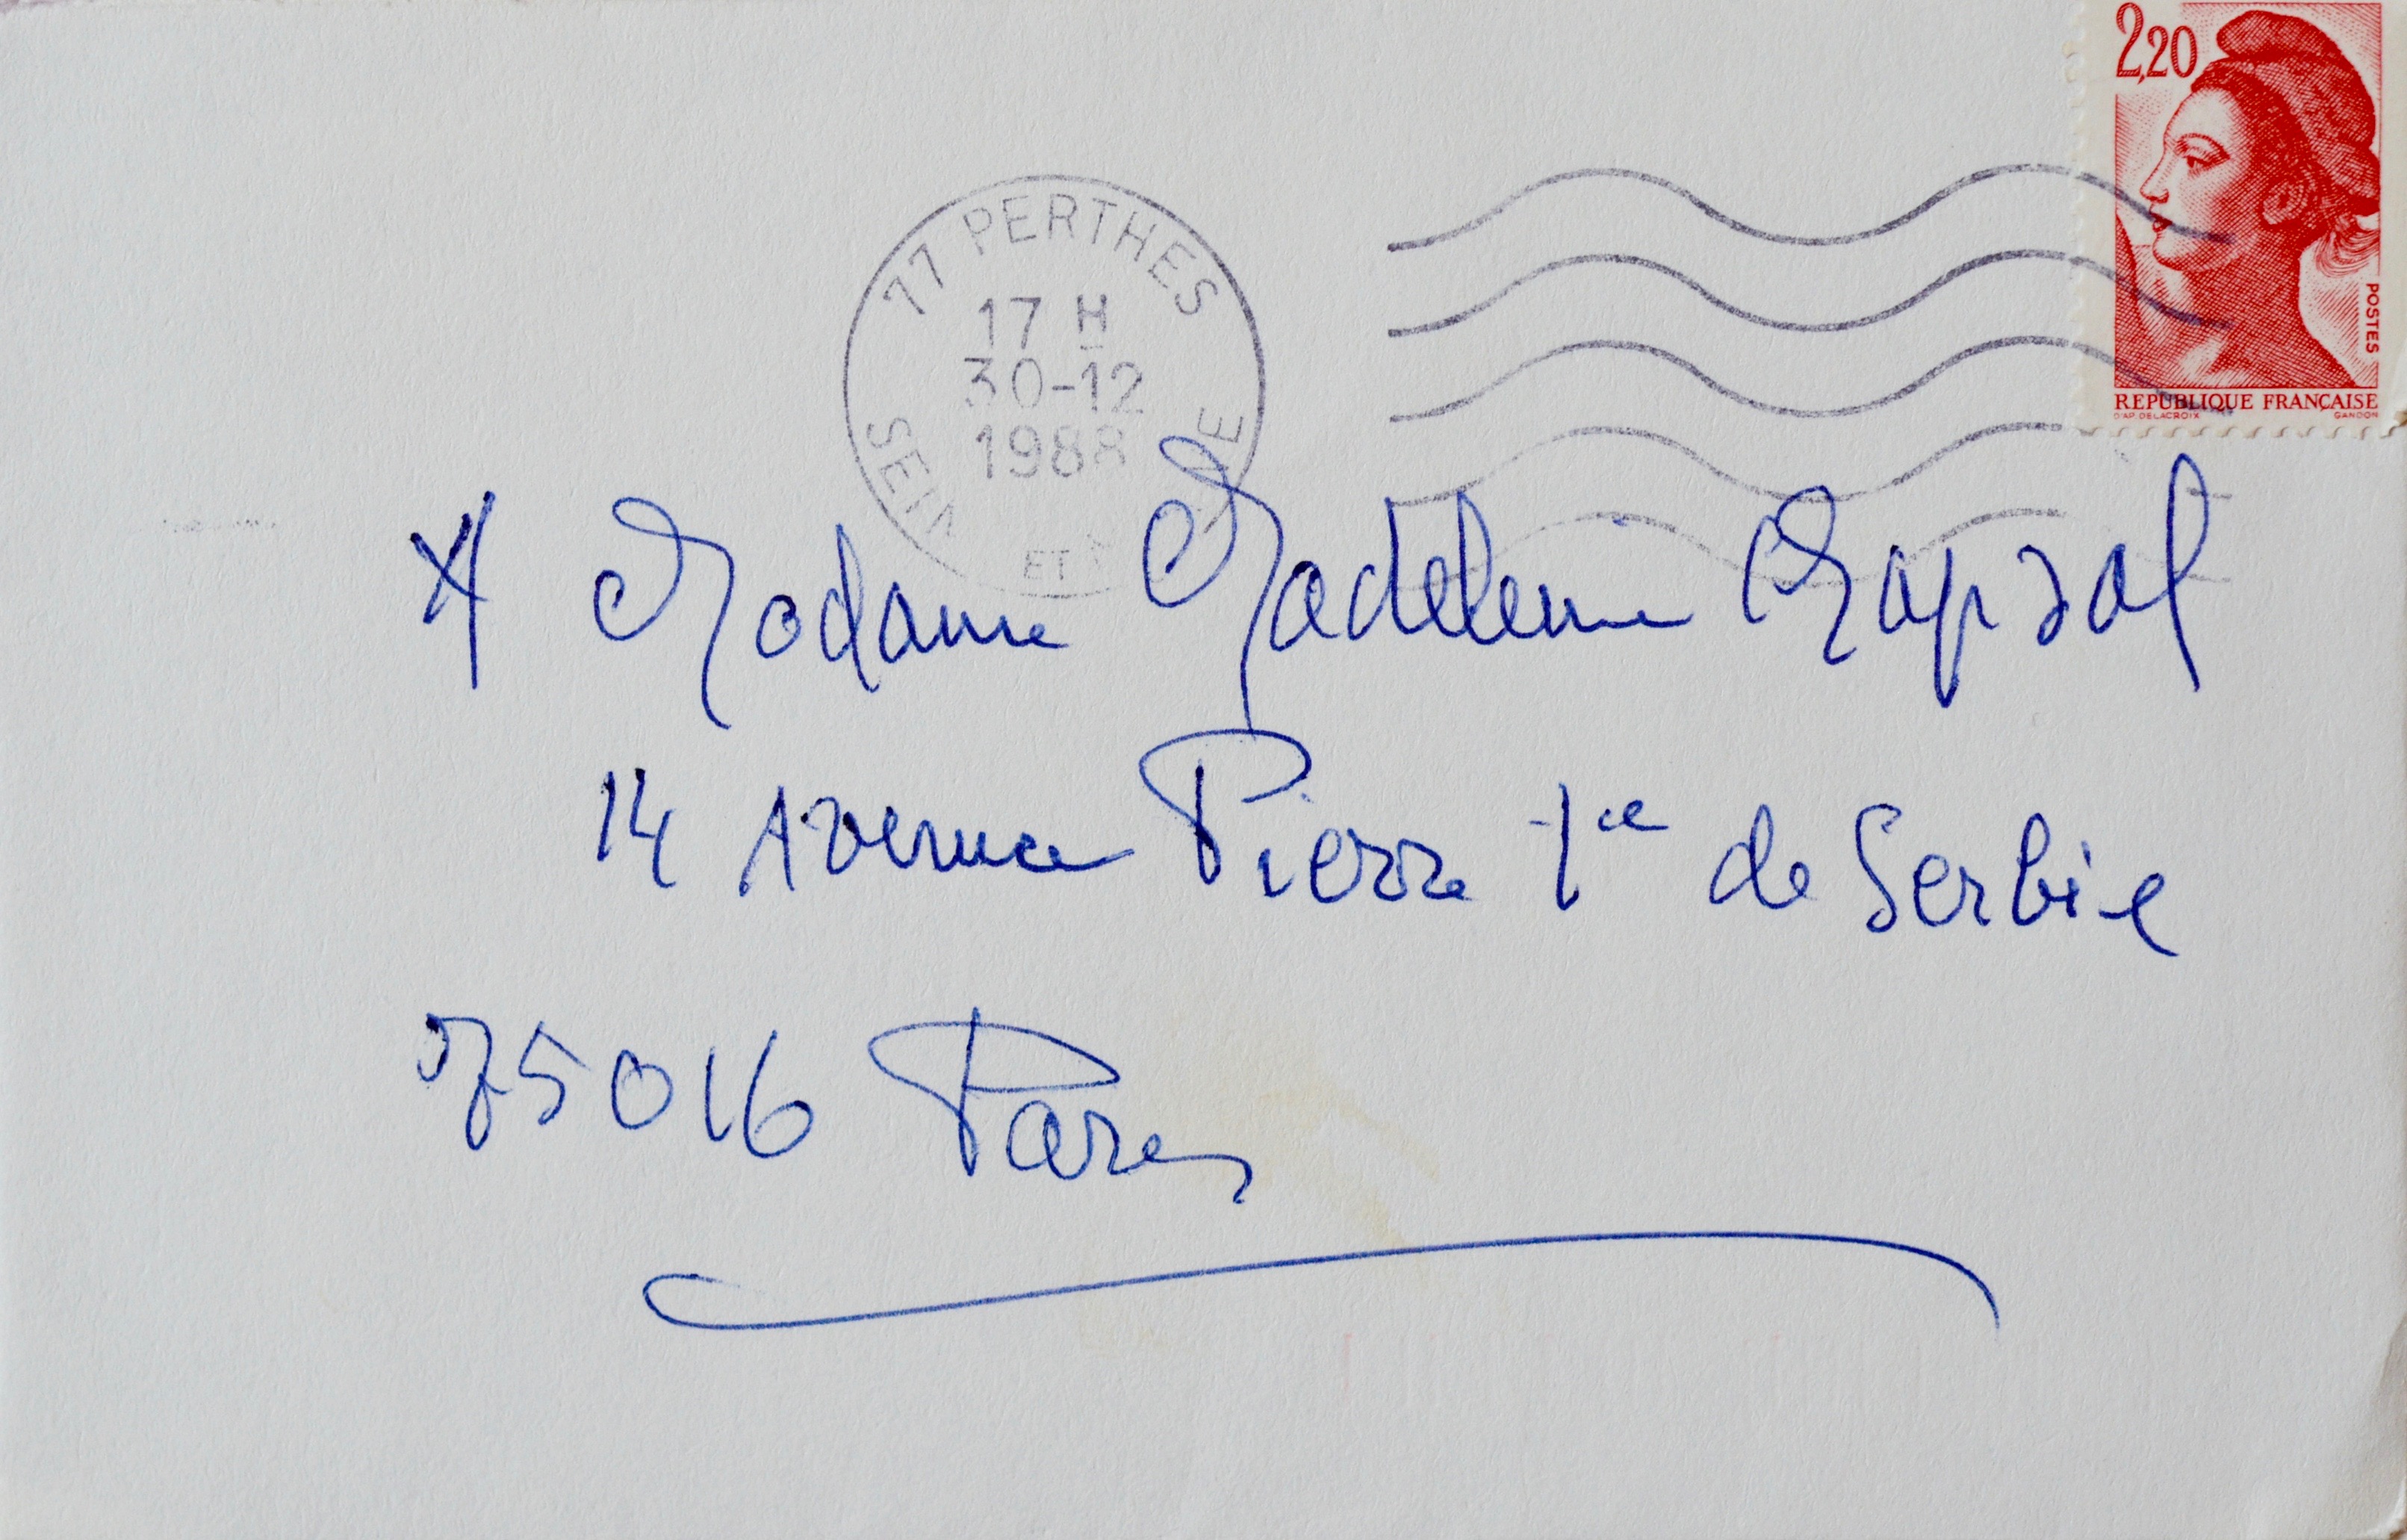 2,20
POSTES
REPUBLIQUE FRANÇAISE
D'AP. DELACROIX GANDON
77 PERTHES
17 H
30-12
1988
SEINE ET M NE
A Madame Madeleine Chapsal
14 Avenue Pierre 1er de Serbie
75016 Paris